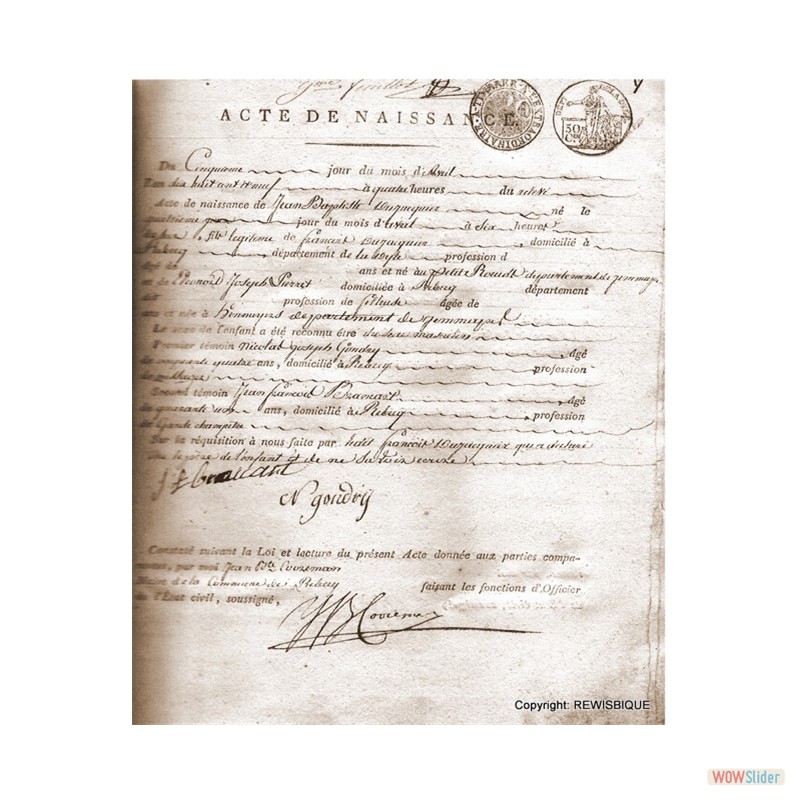 ACTE DE NAISSANCE.
TIMBRE EXTRAORDINAIRE
50 C.
Du Cinquieme jour du mois d'avril
L'an dix huit cent neuf à quatre heures du relevé
Acte de naissance de Jean Baptiste né le
quatrieme jour du mois d'avril à Six heures
fils legitime de francois , domicilié à
Rebecq , département de la Dyle profession d
âgé de ans et né au petit Rœulx departement de jemmapes
et de Leonord Joseph Pierret domiciliée à Rebecq département
dit profession de fileuse âgée de
ans et née à hennuyers departement de jemmapes
Le sexe de l'enfant a été reconnu être du sexe masculin
Premier témoin Nicolas joseph Gondry , âgé
de cinquante quatre ans, domicilié à Rebecq , profession
Second témoin Jean francois , âgé
de quarante ans, domicilié à Rebecq , profession
de Garde champêtre
Sur la réquisition à nous faite par ledit francois qui a déclaré
être le père de l'enfant et de ne savoir ecrire
N gondry
Constaté suivant la Loi et lecture du présent Acte donnée aux parties compa-
rantes, par moi Jean Bte
Maire de la Commune de Rebecq faisant les fonctions d'Officier
de l'État civil, soussigné,
Copyright: REWISBIQUE
WOWSlider